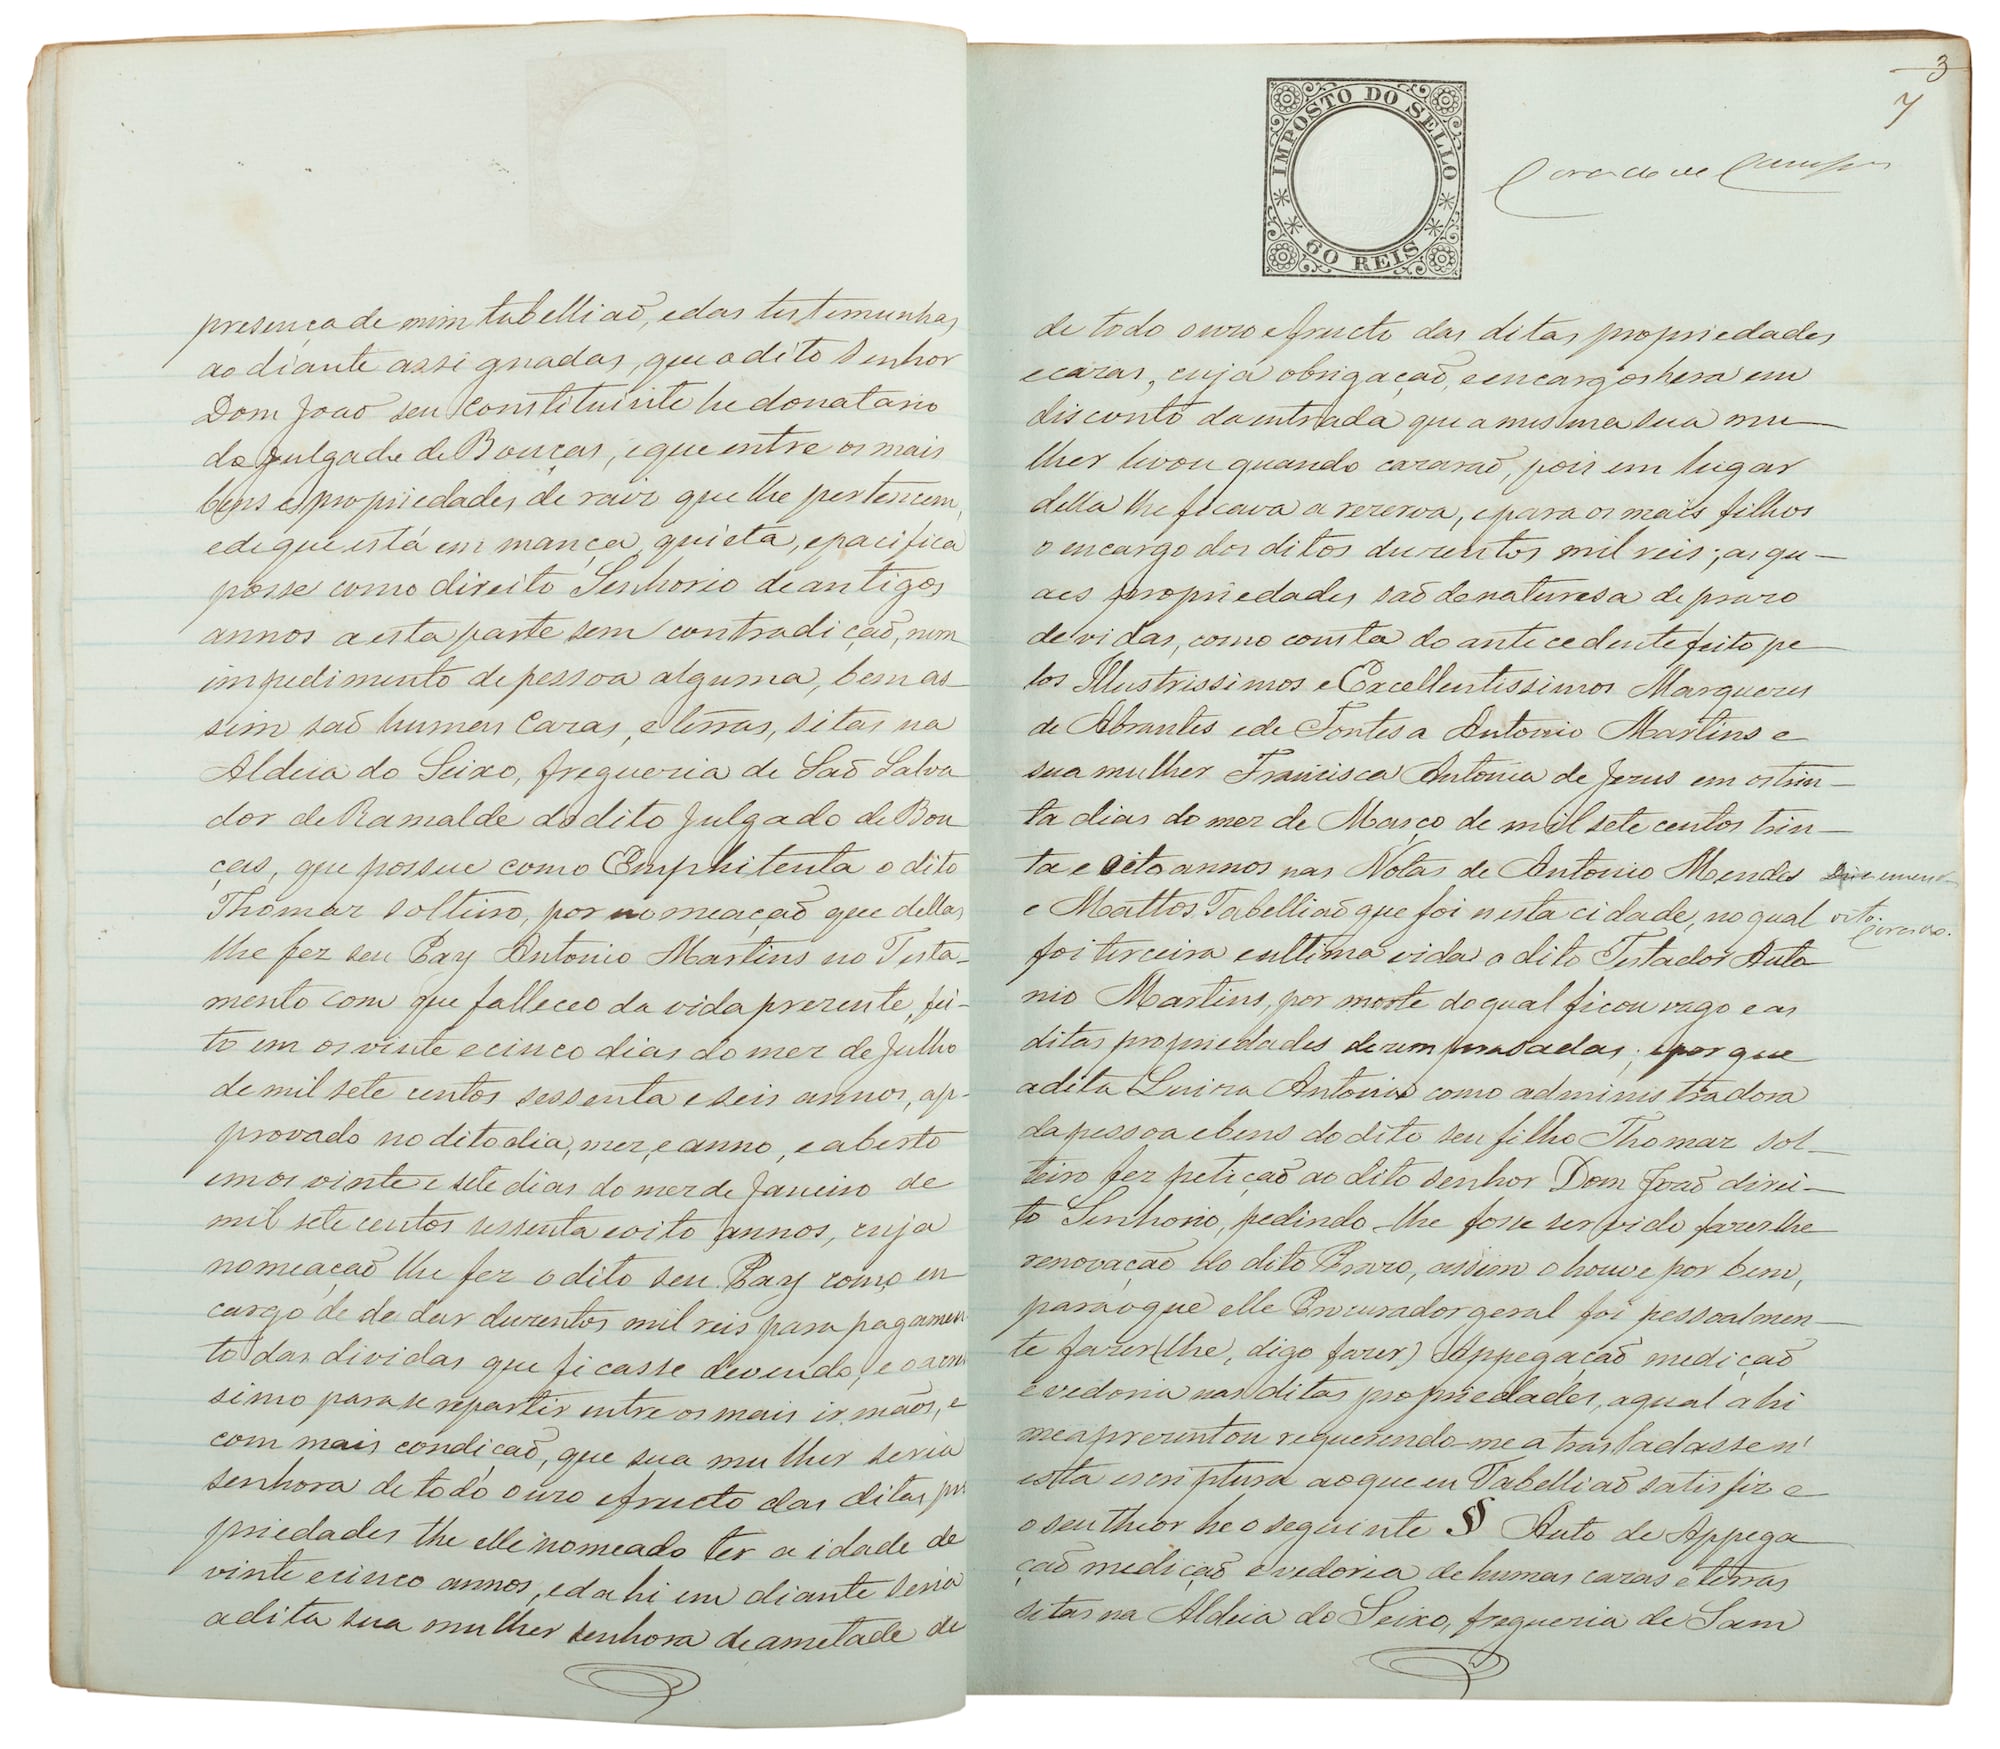 presença de mim tabelliaõ, e das testemunhas
ao diante assignadas, que o dito Senhor
Dom Joaõ seu Constituinte he donatario
do Julgado de Bouças, e que entre os mais
bens e propriedades de raiz que lhe pertencem,
e de que está em mança, quieta, e pacifica
posse como direito Senhorio de antigos
annos a esta parte sem contradiçaõ, nem
impedimento de pessoa alguma, bem as-
sim saõ humas Cazas, e terras, sitas na
Aldeia do Seixo, freguezia de Saõ Salva
dor de Ramalde do dito Julgado de Bou
ças, que possue como Emphiteuta o dito
Thomaz solteiro, por nomeaçaõ que dellas
lhe fez seu Pay Antonio Martins no Testa-
mento com que falleceo da vida prezente, fei-
to em os vinte e cinco dias do mez de Julho
de mil sete centos sessenta e seis annos, ap-
provado no dito dia, mez, e anno, e aberto
em os vinte e sete dias do mez de Janeiro de
mil sete centos sessenta e oito annos, cuja
nomeaçaõ lhe fez o dito seu Pay com o en
cargo de de dar duzentos mil reis para pagamen
to das dividas que ficasse devendo, e o
simo para se repartir entre os mais irmaõs, e
com mais condiçaõ, que sua mulher seria
senhora de todo o uzo e fructo das ditas pro
priedades the elle nomeado ter a idade de
vinte e cinco annos, e dahi em diante seria
a dita sua mulher senhora de ametade de
3
7
IMPOSTO DO SELLO
60 REIS
de todo o uzo e fructo das ditas propriedades
e cazas, cuja obrigaçaõ, e encargos hera em
disconto da entrada que a mesma sua mu-
lher levou quando cazaraõ, pois em lugar
della lhe ficava a rezerva, e para os mais filhos
o encargo dos ditos duzentos mil reis; as qu-
aes propriedades saõ de natureza de prazo
de vidas, como consta do antecedente feito pe-
los Illustrissimos e Excellentissimos Marquezes
de Abrantes e de Fontes a Antonio Martins e
sua mulher Francisca Antonia de Jezus em os trin-
ta dias do mez de Março de mil sete centos trin-
ta e oito annos nas Notas de Antonio Mendes
e Mattos Tabelliaõ que foi nesta cidade, no qual
oito.
foi terceira e ultima vida o dito Testador Anto
nio Martins, por morte do qual ficou vago e as
ditas propriedades dezemprazadas; e por que
a dita Luiza Antonia como administradora
da pessoa e bens do dito seu filho Thomaz sol-
teiro fez petiçaõ ao dito senhor Dom Joaõ direi-
to Senhorio, pedindo-lhe fosse servido fazer lhe
renovaçaõ do dito Prazo, assim o houve por bem,
para o que elle Procurador geral foi pessoalmen-
te fazer (lhe, digo fazer) Appegaçaõ mediçaõ
e vedoria nas ditas propriedades, a qual ahi
me aprezentou requerendo-me a trasladasse n'
esta escriptura ao que eu Tabelliaõ satisfiz e
o seu theor he o seguinte § Auto de Appega
çaõ mediçaõ e vedoria de humas cazas e terras
sitas na Aldeia do Seixo, freguezia de Sam